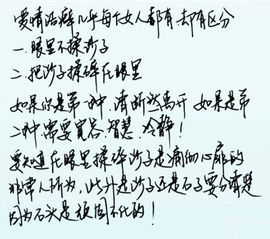 爱情洁癖几乎每个女人都有却有区分
一.眼里不揉沙子
二.把沙子揉碎在眼里
如果你是第一种.请断然离开 如果是第
二种需要宽容.智慧.冷静！
要知道在眼里揉碎沙子是痛彻心扉的
非常人所为，此外是沙子还是石子要分清楚
因为石头是顽固不化的！